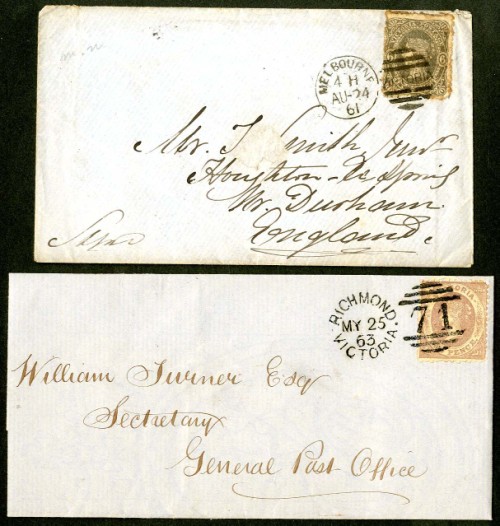 MELBOURNE
4 H
AU-24
61
VICTORIA
Mr. T. Smith Junr.
Houghton-le Spring
Nr. Durham
England.
RICHMOND.
MY 25
63
VICTORIA
71
VICTORIA
PENCE
William Turner Esq
Secretary
General Post Office